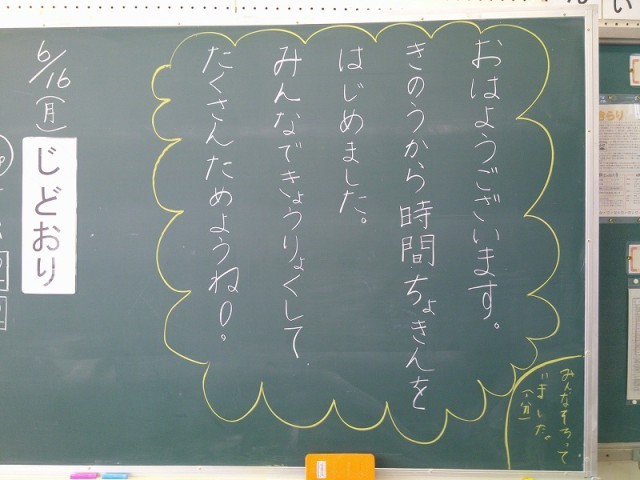 おはようございます。
きのうから時間ちょきんを
はじめました。
みんなできょうりょくして
たくさんためようね。
みんなそろって
いました。
(1分)
6/16(月)
じどおり